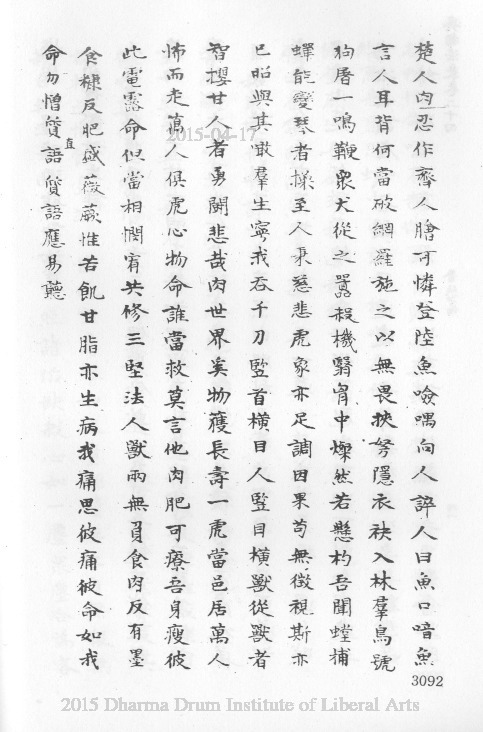 楚人肉忍作齊人膳可憐登陸魚噞喁向人誶人曰魚口喑魚
言人耳背何當破網羅施之以無畏挾弩隱衣袂入林羣鳥號
狗屠一鳴鞭眾犬從之囂殺機翳胸中燦然若懸杓吾聞螳捕
蟬能變琴者操至人秉慈悲虎象亦足調因果苟無徵視斯亦
已昭與其啖羣生寧我吞千刀豎首橫目人豎目橫獸從獸者
智攖甘人者勇鬪悲哉肉世界奚物獲長壽一虎當邑居萬人
怖而走萬人俱虎心物命誰當救莫言他肉肥可療吾身瘦彼
此電露命但當相憫宥共修三堅法人獸兩無負食肉反有墨
食糠反肥盛薇蕨惟若飢甘脂亦生病我痛思彼痛彼命如我
命勿憎質直語質語應易聽
3092
2015-04-17
2015 Dharma Drum Institute of Liberal Arts